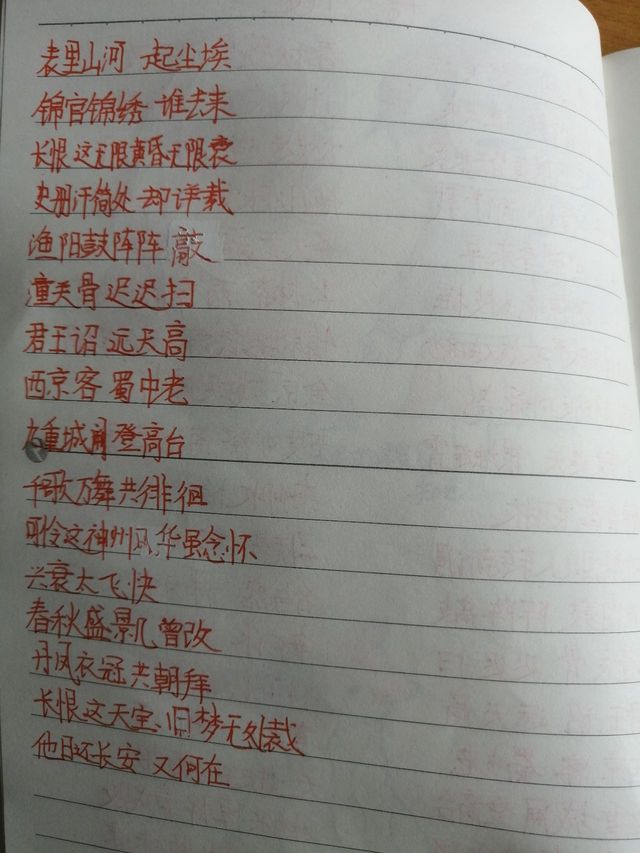 表里山河 起尘埃
锦官锦绣 谁去来
长恨这无限黄昏无限哀
史册汗简处 却详载
渔阳鼓阵阵 敲
童关骨 迟迟扫
君王诏 远天高
西京客 蜀中老
重城阙登高台
千歌万舞共徘徊
可怜这神州风华虽念怀
兴衰太飞快
春秋盛景几曾改
丹凤衣冠共朝拜
长恨这天宝 旧梦无处裁
他日还长安 又何在